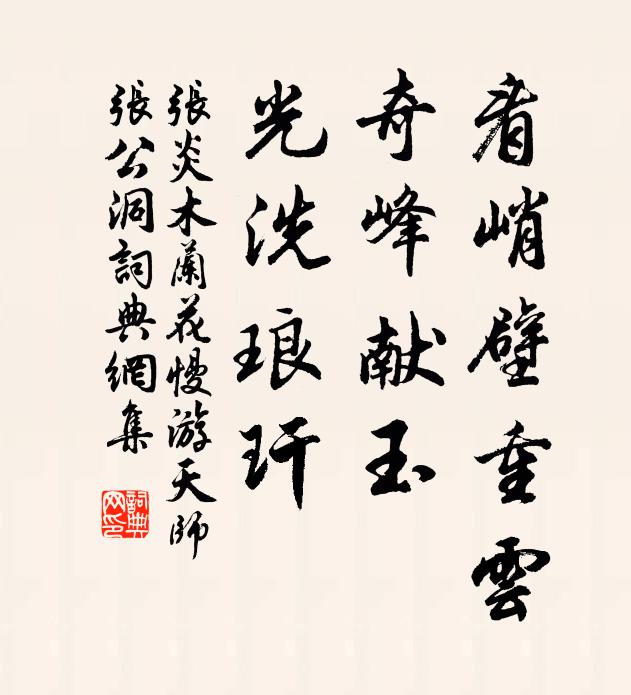 看峭壁重雲
奇峰献玉
光洗琅玕
張炎木蘭花慢游天師
張公洞詞典網集
詞典网印